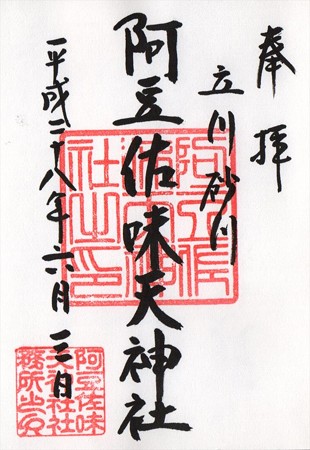 奉拝
立川砂川
阿豆佐味天神社
平成二十八年六月三日
阿豆佐味天神社之印
阿豆佐味
天神社社
務所之印